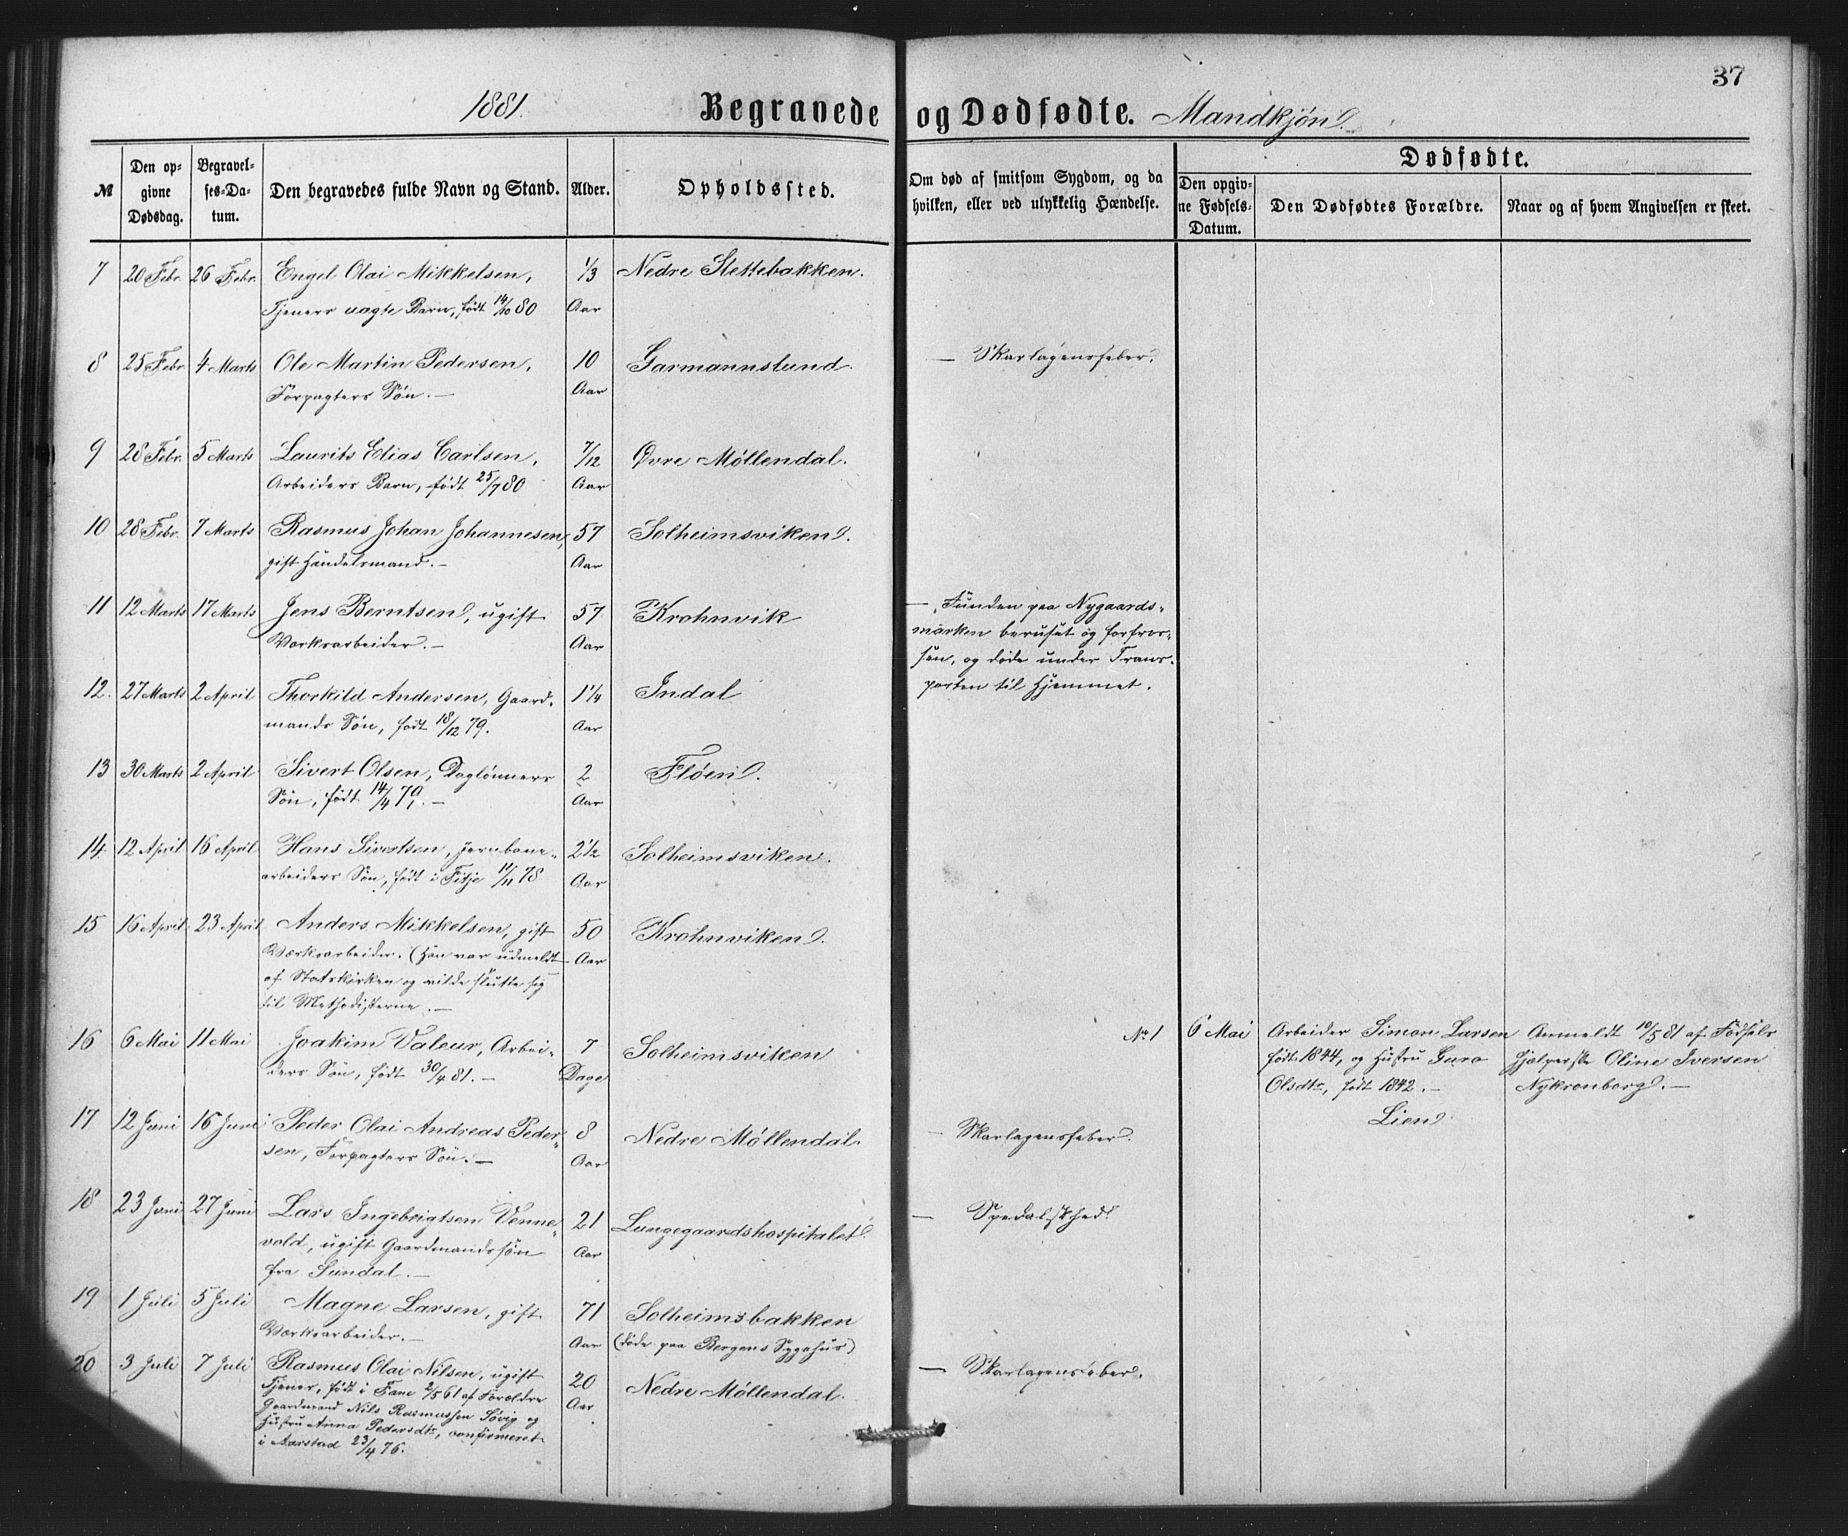 37
1881.
Begravede og Dødfødte. Mandkjøn.
№
Den op-
givne
Dødsdag.
Begravel-
ses-Da-
tum.
Den begravedes fulde Navn og Stand.
Alder.
Opholdssted.
Om død af smitsom Sygdom, og da
hvilken, eller ved ulykkelig Hændelse.
Dødfødte.
Den opgiv-
ne Fødsels-
Datum.
Den Dødfødtes Forældre.
Naar og af hvem Angivelsen er skeet.
7 20 Febr. 26 Febr. Engel Olai Mikkelsen, 1/3 Nedre Slettebakken.
Tjeners uægte Barn, født 14/10 80 Aar
8 25 Febr. 4 Marts Ole Martin Pedersen, 10 Garmannslund. — Skarlagensfeber.
Forpagters Søn. — Aar
9 28 Febr. 5 Marts Laurits Elias Carlsen, 7/12 Øvre Møllendal.
Arbeiders Barn, født 25/7 80 Aar
10 28 Febr. 7 Marts Rasmus Johan Johannesen, 57 Solheimsviken.
gift Handelsmand. — Aar
11 12 Marts 17 Marts Jens Berntsen, ugift 57 Krohnvik — Funden paa Nygaards-
Værksarbeider. — Aar marken beruset og forfros-
sen, og døde under Trans-
porten til Hjemmet.
12. 27 Marts 2 April Thorkild Andersen, Gaard- 1 1/4 Indal
mands Søn, født 18/12 79. Aar
13 30 Marts 2 April Sivert Olsen, Daglønners 2 Fløen.
Søn, født 14/4 79. — Aar
14 12 April 16 April Hans Sivertsen, Jernbane- 2 1/2 Solheimsviken.
arbeiders Søn, født i Fitje 11/11 78 Aar
15 16 April 23 April Anders Mikkelsen, gift 50 Krohnviken.
Værksarbeider. (Han var udmeldt Aar
af Statskirken og vilde slutte sig
til Methodisterne. —
16 6 Mai 11 Mai Joakim Valeur, Arbei- 7 Solheimsviken
ders Søn, født 30/4 81. — Dage
No 1 6 Mai Arbeider Simon Larsen
født 1844, og Hustru Guro
Olsdtr, født 1842. —
Lien.
Anmeldt 10/5 81 af Fødsels
hjælperske Oline Iversen
Nykronborg. —
17 12 Juni 16 Juni Peder Olai Andreas Peder- 8 Nedre Møllendal. — Skarlagensfeber.
sen, Forpagters Søn. — Aar
18 23 Juni 27 Juni Lars Ingebrigtsen Venne- 21 Lungegaardshospitalet. — Spedalskhed.
vold, ugift Gaardmandssøn Aar
fra Sundal. —
19 1 Juli 5 Juli Magne Larsen, gift 71 Solheimsbakken
Værksarbeider. — Aar (døde paa Bergens Sygehus)
20 3 Juli 7 Juli Rasmus Olai Nilsen, ugift 20 Nedre Møllendal. — Skarlagensfeber.
Tjener, født i Fane 2/5 61 af Forældre Aar
Gaardmand Nils Rasmussen Søvig og
Hustru Anna Pedersdtr, confirmeret
i Aarstad 23/4 76.